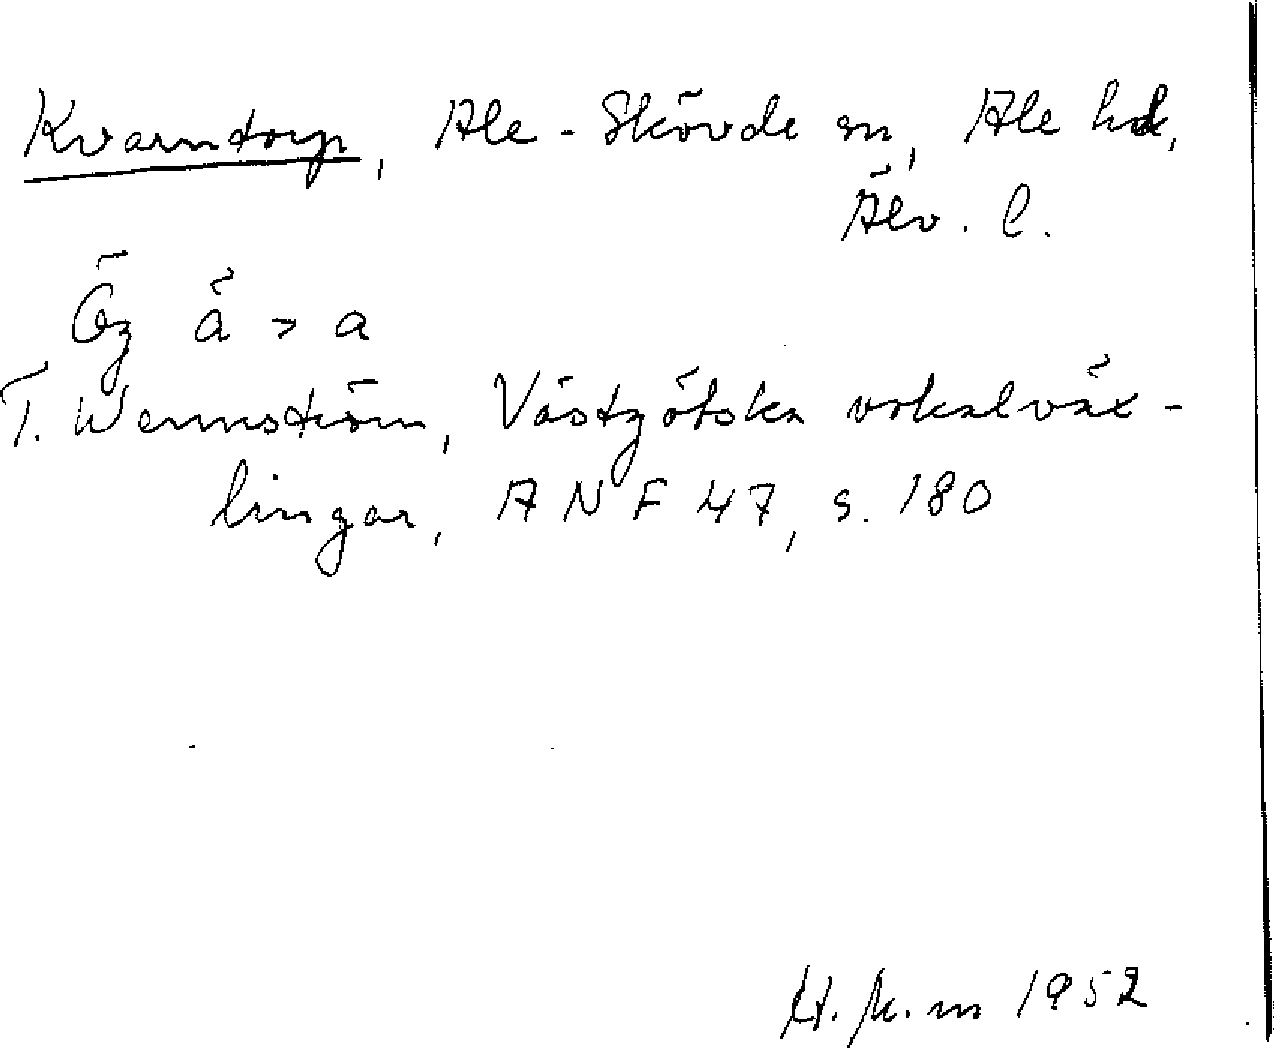 Kvarntorp, Ale-Skövde sn, Ale hd,
Älv. l.
Ög ä > a
T. Wennström, Västgötska vokalväx-
lingar, ANF 47, s. 180
1952